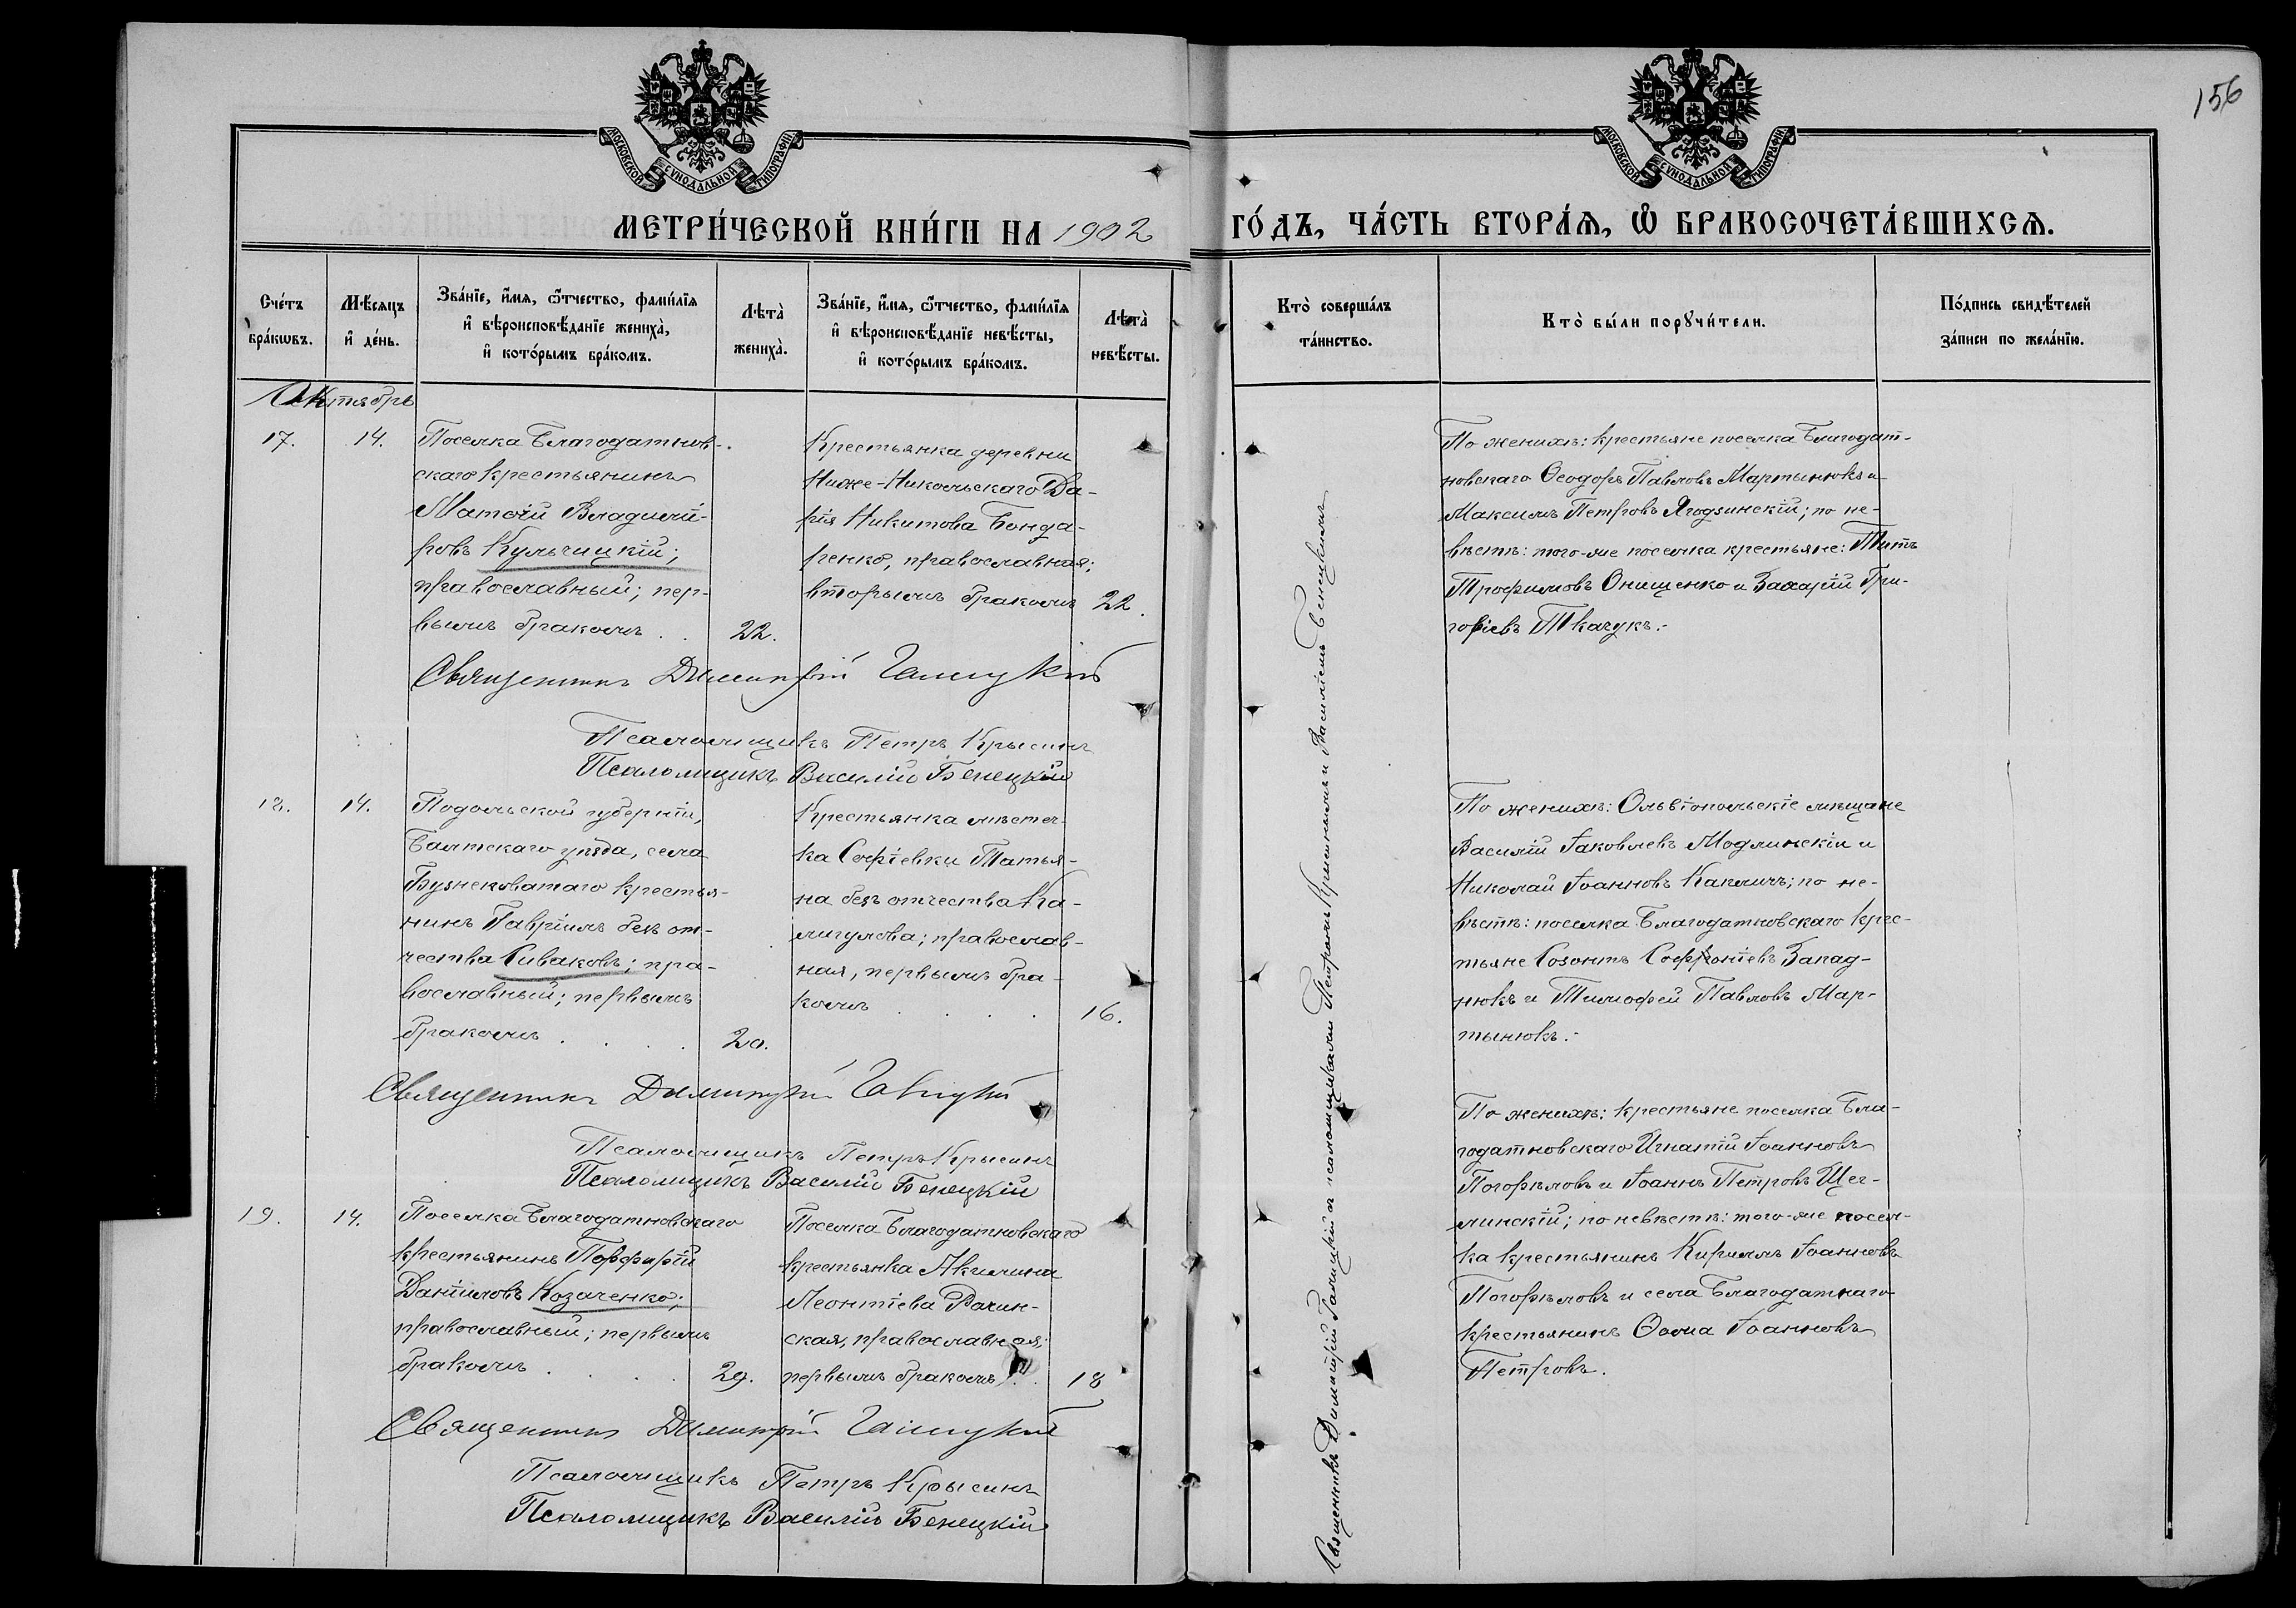 156
МОСКОВСКОЙ СѴНОДАЛЬНОЙ ТИПОГРАФІИ
МОСКОВСКОЙ СѴНОДАЛЬНОЙ ТИПОГРАФІИ
МЕТРИ́ЧЕСКОЙ КНИ́ГИ НА 1902 ГО́ДЪ, ЧА́СТЬ ВТОРА́Я, Ѽ БРАКОСОЧЕТА́ВШИХСЯ.
Сче́тъ
бра́кѡвъ.
Мѣ́сяцъ
и҆ де́нь.
Зва́нїе, и҆́мя, ѻ҆́тчество, фами́лїя
и҆ вѣроисповѣ́данїе жениха̀,
и҆ кото́рымъ бра́комъ.
Лѣта̀
жениха̀.
Зва́нїе, и҆́мя, ѻ҆́тчество, фами́лїя
и҆ вѣроисповѣ́данїе невѣ́сты,
и҆ кото́рымъ бра́комъ.
Лѣта̀
невѣ́сты.
Кто̀ соверша́лъ
та́инство.
Кто̀ бы́ли порꙋчи́тели.
По́дпись свидѣ́телей
за́писи по жела́нїю.
Октябрь
17.
14.
Поселка Благодатнов-
скаго крестьянинъ
Матѳій Владимі-
ровъ Кульчицкій;
православный; пер-
вымъ бракомъ . .
22.
Крестьянка деревни
Ниже-Никольскаго Да-
рія Никитова Бонда-
ренко, православная;
вторымъ бракомъ
22.
По женихѣ: крестьяне поселка Благодат-
новскаго Ѳеодоръ Павловъ Мартынюкъ и
Максимъ Петровъ Ягодзинскій; по не-
вѣстѣ: того-же поселка крестьяне: Титъ
Трофимовъ Онищенко и Захарій Гри-
горіевъ Ткачукъ.-
Священникъ Димитрій Галицкій
Псаломщикъ Петръ Крысинъ
Псаломщикъ Василій Бенецкій
18.
14.
Подольской губерніи,
Балтскаго уѣзда, села
Бузнековатаго крестья-
нинъ Гавріилъ безъ от-
чества Сиваковъ; пра-
вославный; первымъ
бракомъ . . . .
20.
Крестьянка мѣстеч-
ка Софіевки Татья-
на безъ отчества Ка-
лигулова; православ-
ная, первымъ бра-
комъ . . . .
16.
По женихѣ: Ольвіопольскіе мѣщане
Василій Іаковлевъ Модлинскій и
Николай Іоанновъ Каклинъ; по не-
вѣстѣ: поселка Благодатновскаго крес-
тьяне Созонтъ Софроніевъ Запад-
нюкъ и Тимофей Павловъ Мар-
тынюкъ.-
Священникъ Димитрій Галицкій
Псаломщикъ Петръ Крысинъ
Псаломщикъ Василій Бенецкій
19.
14.
Поселка Благодатновскаго
крестьянинъ Порфирій
Даніиловъ Козаченко;
православный; первымъ
бракомъ . . . .
29.
Поселка Благодатновскаго
крестьянка Акилина
Леонтіева Рачин-
ская, православная;
первымъ бракомъ . .
18
По женихѣ: крестьяне поселка Бла-
годатновскаго Игнатій Іоанновъ
Погорѣловъ и Іоаннъ Петровъ Щег-
линскій; по невѣстѣ: того-же посел-
ка крестьянинъ Кириллъ Іоанновъ
Погорѣловъ и села Благодатнаго
крестьянинъ Ѳома Іоанновъ
Петровъ.
Священникъ Димитрій Галицкій
Псаломщикъ Петръ Крысинъ
Псаломщикъ Василій Бенецкій
Священникъ Димитрій Галицкій съ псаломщиками Петромъ Крысинымъ и Василіемъ Бенецкимъ